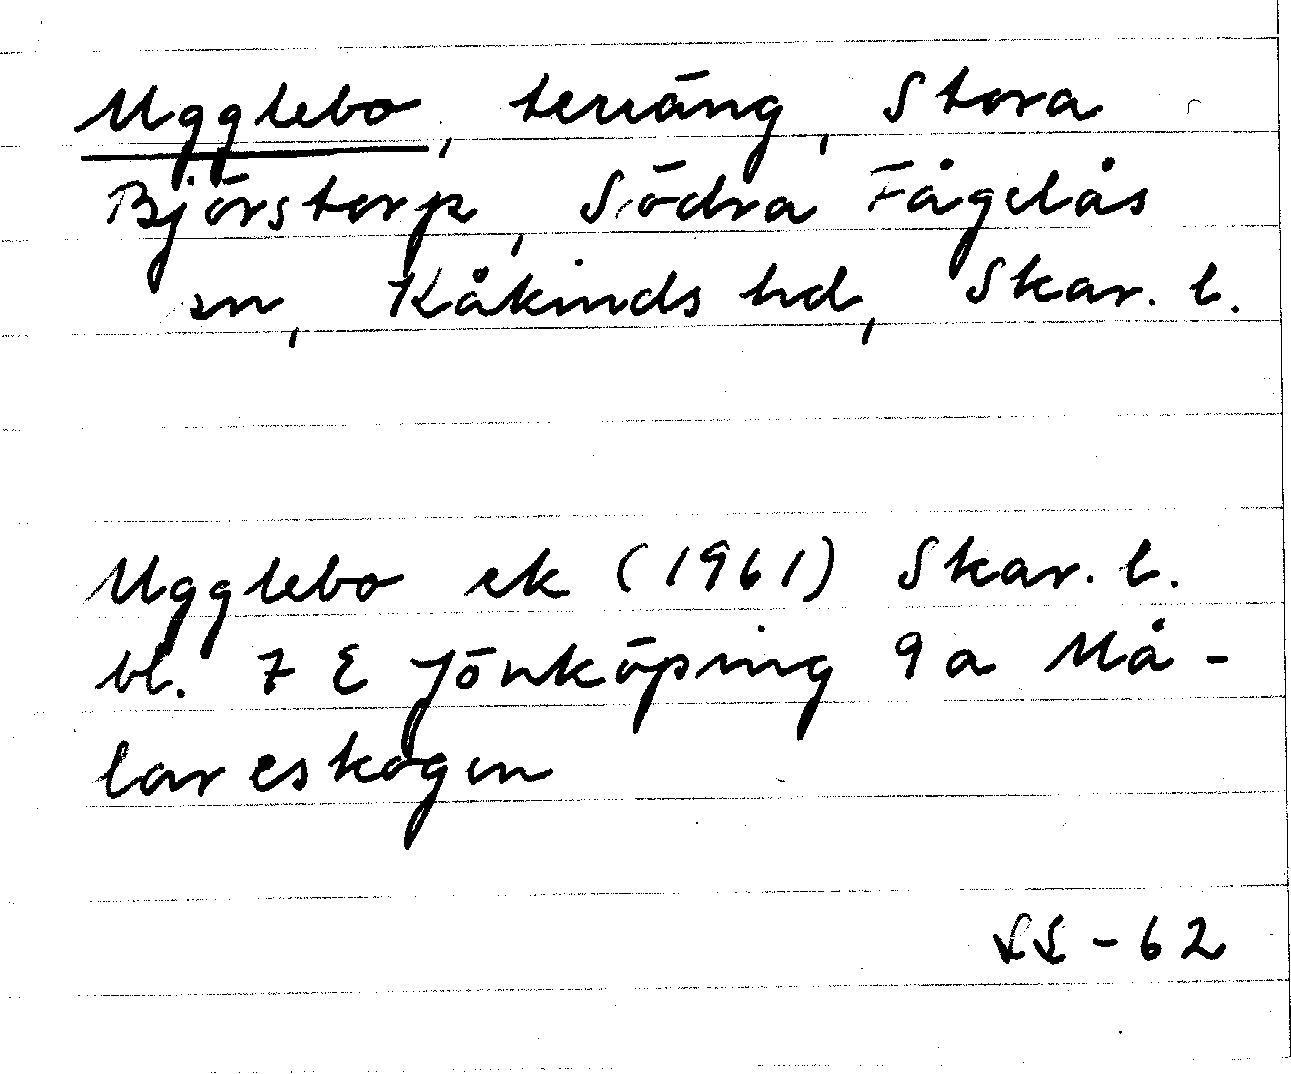 Ugglebo, terräng, Stora
Björstorp, Södra Fågelås
sn, Kåkinds hd, Skar. l.
Ugglebo ek (1961) Skar. l.
bl. 7 E Jönköping 9 a Må-
lareskogen
LL - 62